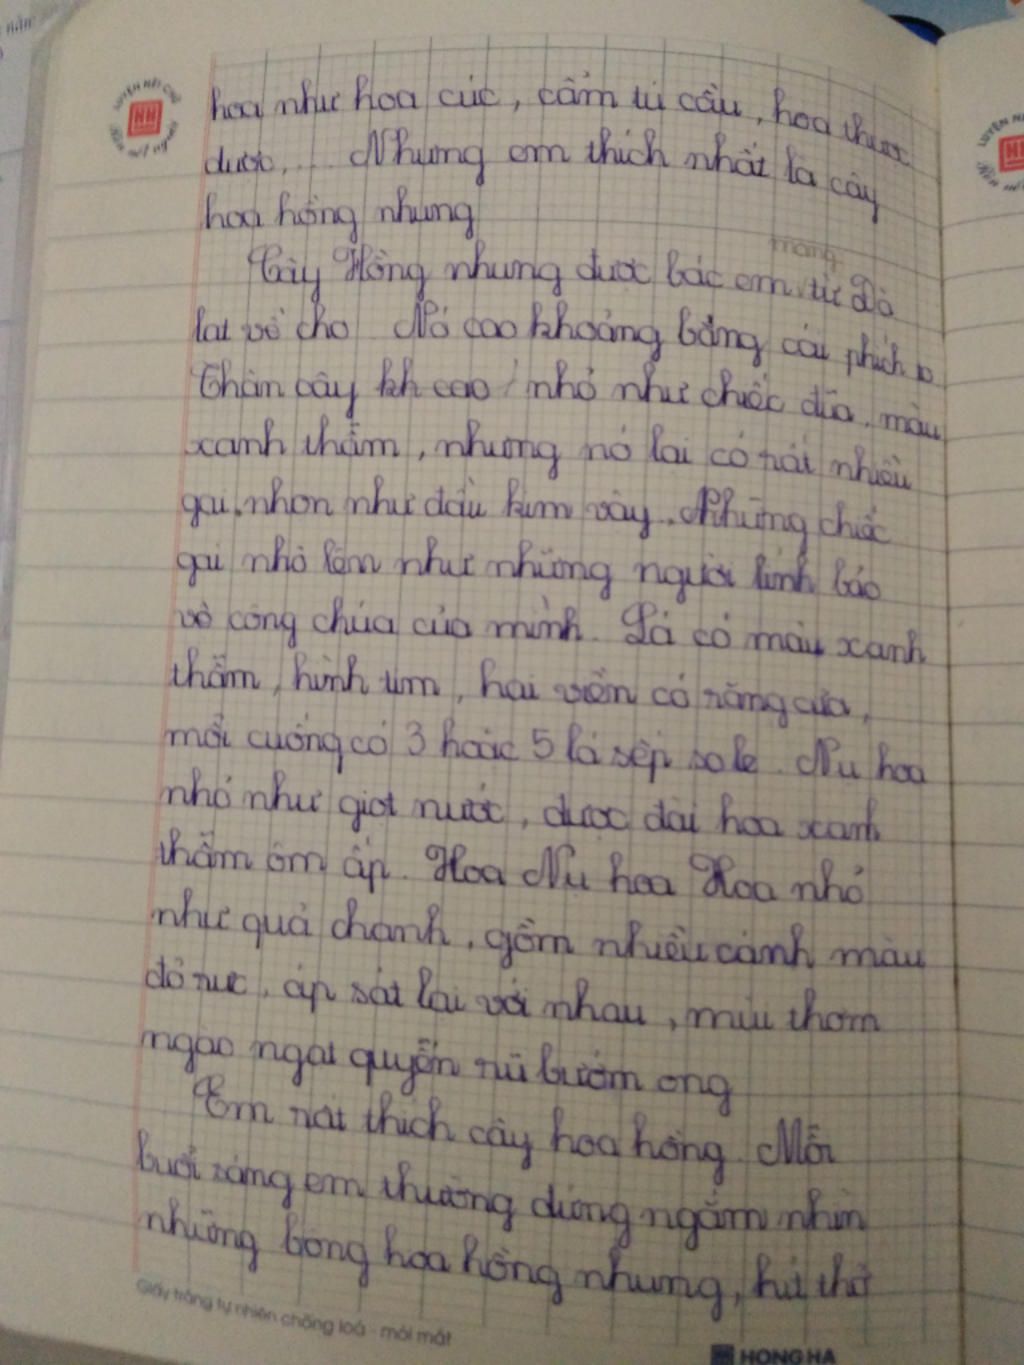 hoa như hoa cúc, cẩm tú cầu, hoa thược
dược,... Nhưng em thích nhất là cây
hoa hồng nhung
mang
Cây Hồng nhung được bác em từ Đà
lạt về cho Nó cao khoảng bằng cái phích
Thân cây kh cao nhỏ như chiếc đũa, màu
xanh thẫm, nhưng nó lại có rất nhiều
gai nhọn như đầu kim vậy. Những chiếc
gai nhỏ lởm như những người lính bảo
vệ công chúa của mình. Lá có màu xanh
thẫm, hình tim, hai viền có răng cưa,
mỗi cuống có 3 hoặc 5 lá sếp so le. Nụ hoa
nhỏ như giọt nước, được đài hoa xanh
thẫm ôm ấp. Hoa Nụ hoa Hoa nhỏ
như quả chanh, gồm nhiều cánh màu
đỏ rực, áp sát lại với nhau, mùi thơm
ngào ngạt quyến rũ bướm ong
Em rất thích cây hoa hồng. Mỗi
buổi sáng em thường đứng ngắm nhìn
những bông hoa hồng nhung, hít thở
Giấy trắng tự nhiên chống loá - mỏi mắt
HONG HA
LUYỆN NÉT CHỮ
Rèn nết người
HH
LUYỆN N
Rèn nế